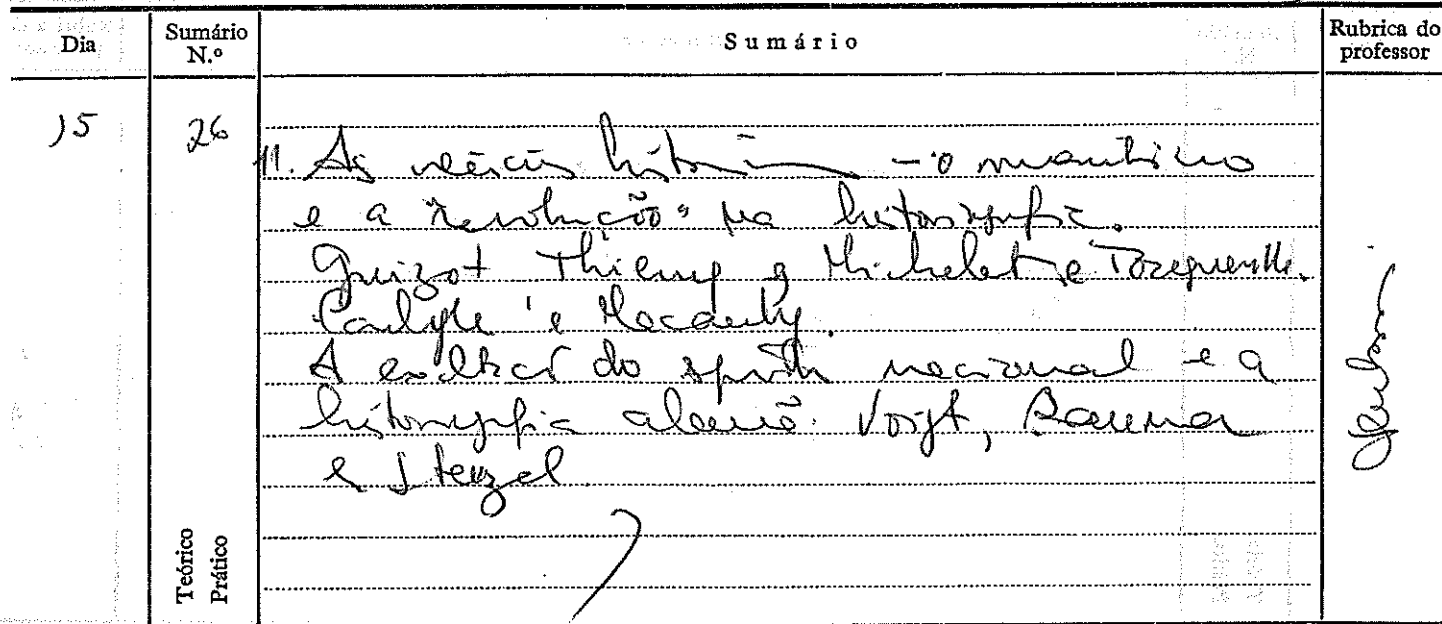 Dia
Sumário N.º
Sumário
Rubrica do professor
15
26
11. As
e a "Revolução" na historiografia.
Guizot Thierry e Michelet e Tocqueville.
Carlyle e Macaulay.
A exaltação do espírito nacional e a
historiografia alemã. Voigt, Raumer
e Stenzel
Teórico
Prático